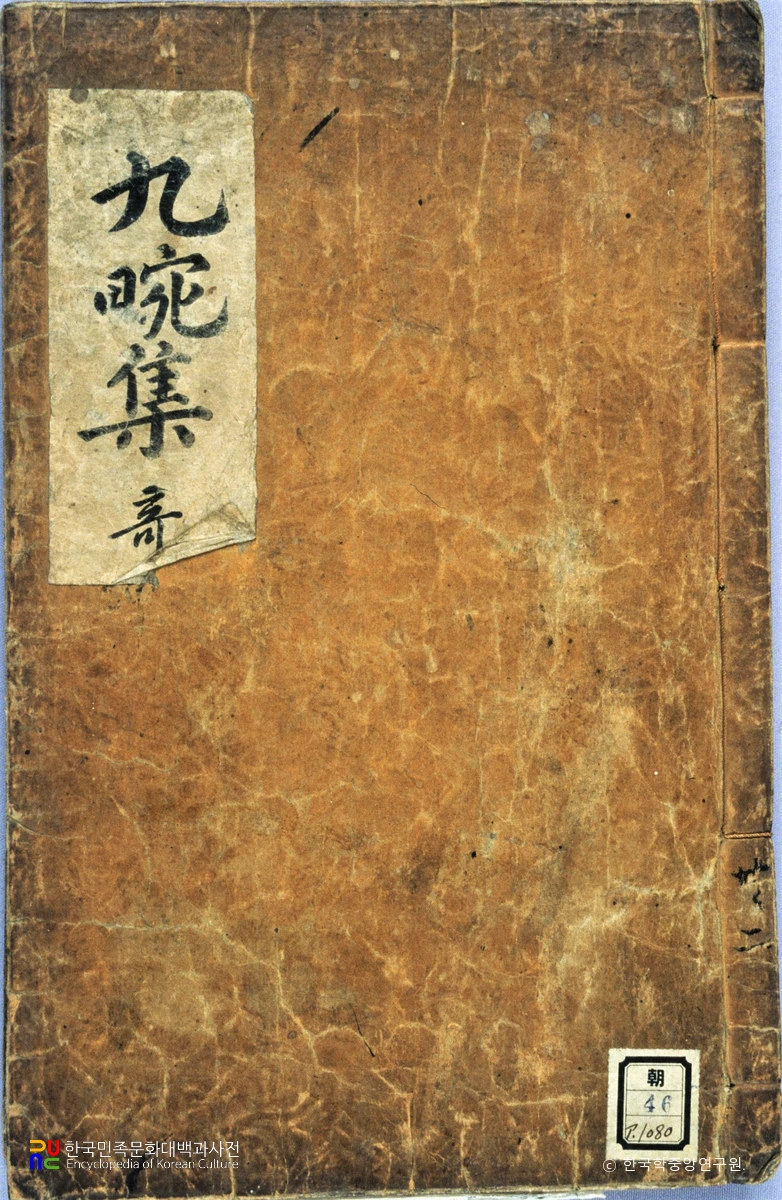 九畹集 竒
共二
朝
46
P.1080
한국민족문화대백과사전
Encyclopedia of Korean Culture
© 한국학중앙연구원